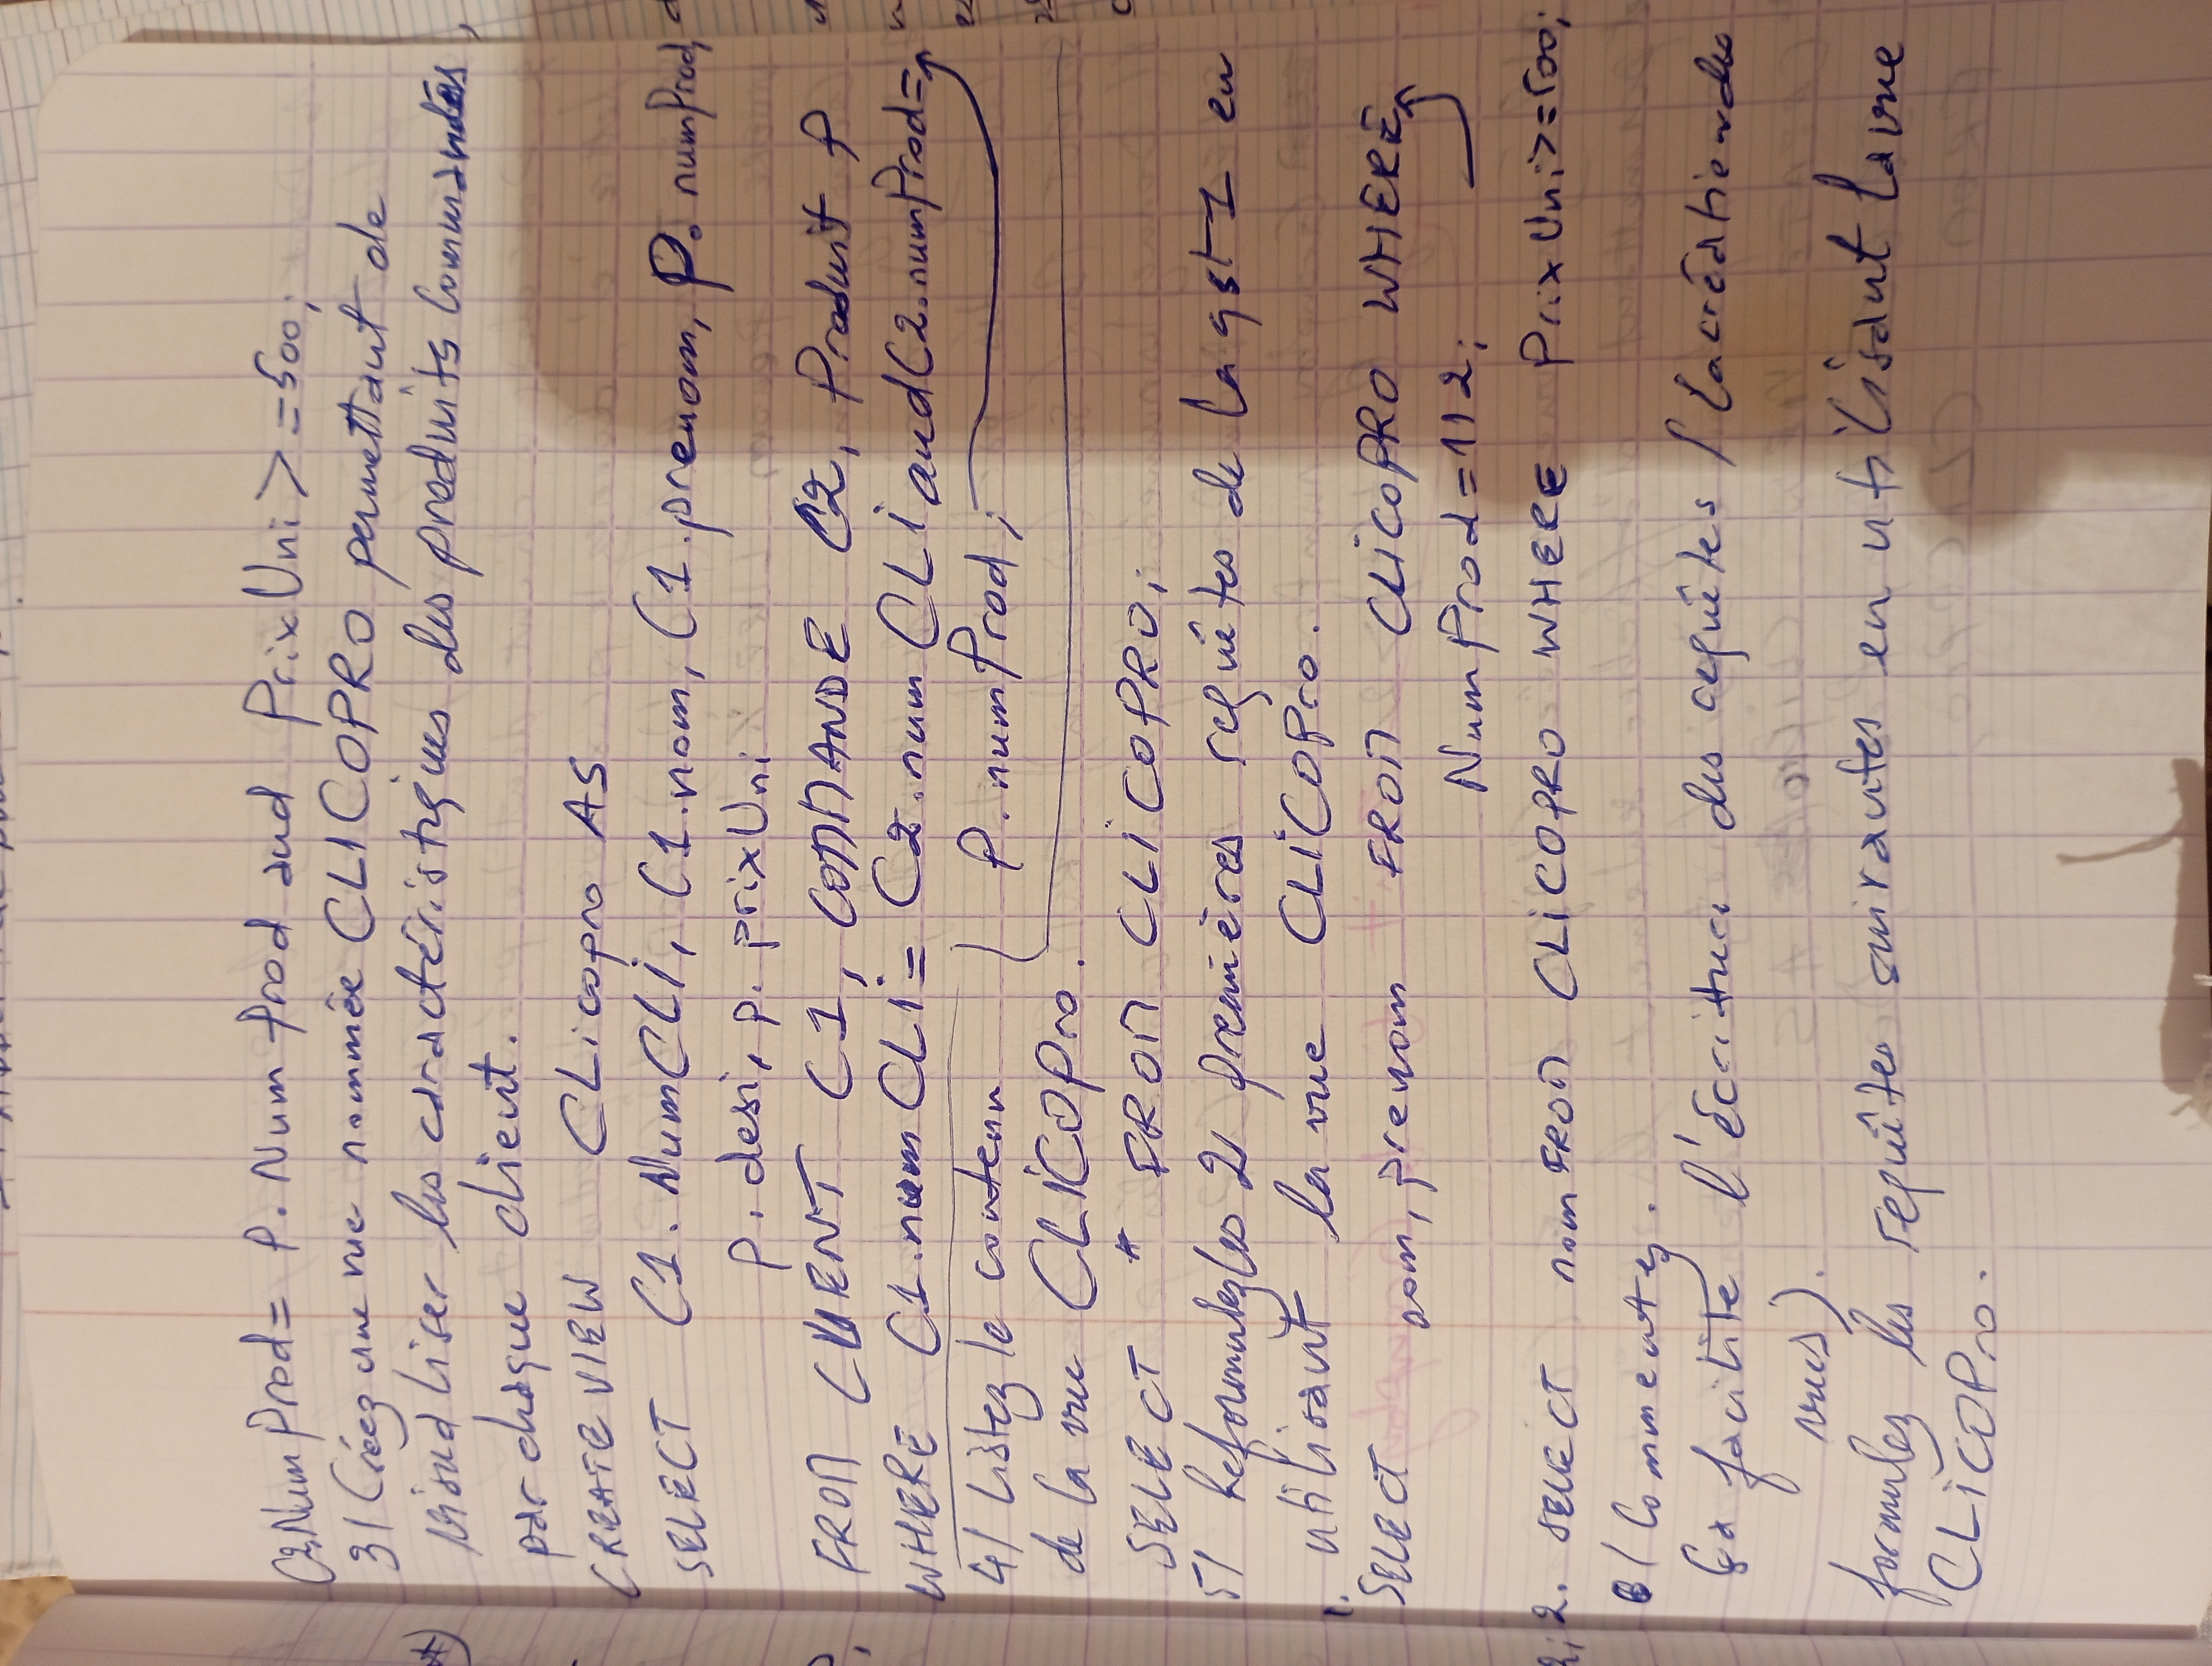 C2.NumProd = P.NumProd and PrixUni >= 500;
3/ Créez une vue nommée CLICOPRO permettant de
visualiser les caractéristiques des produits commandés,
par chaque client.
CREATE VIEW CLicopro AS
SELECT C1.NumCLi, C1.nom, C1.prenom, P.numProd,
P.desi, P.prixUni
FROM CLIENT C1, COMMANDE C2, Produit P
WHERE C1.numCLi = C2.numCLi and C2.numProd =
P.numProd;
4/ Listez le contenu
de la vue CLICOPro.
SELECT * FROM CLICOPRO;
5/ Reformulez les 2 premières requêtes de la qst 1 en
utilisant la vue CLICOPro.
1. SELECT nom, prenom FROM CLICOPRO WHERE
NumProd = 112;
2. SELECT nom FROM CLICOPRO WHERE PrixUni >= 500;
6/ Commentez.
Ça facilite l'écriture des requêtes (la création des
vues).
formulez les requêtes suivantes en utilisant la vue
CLICOPro.